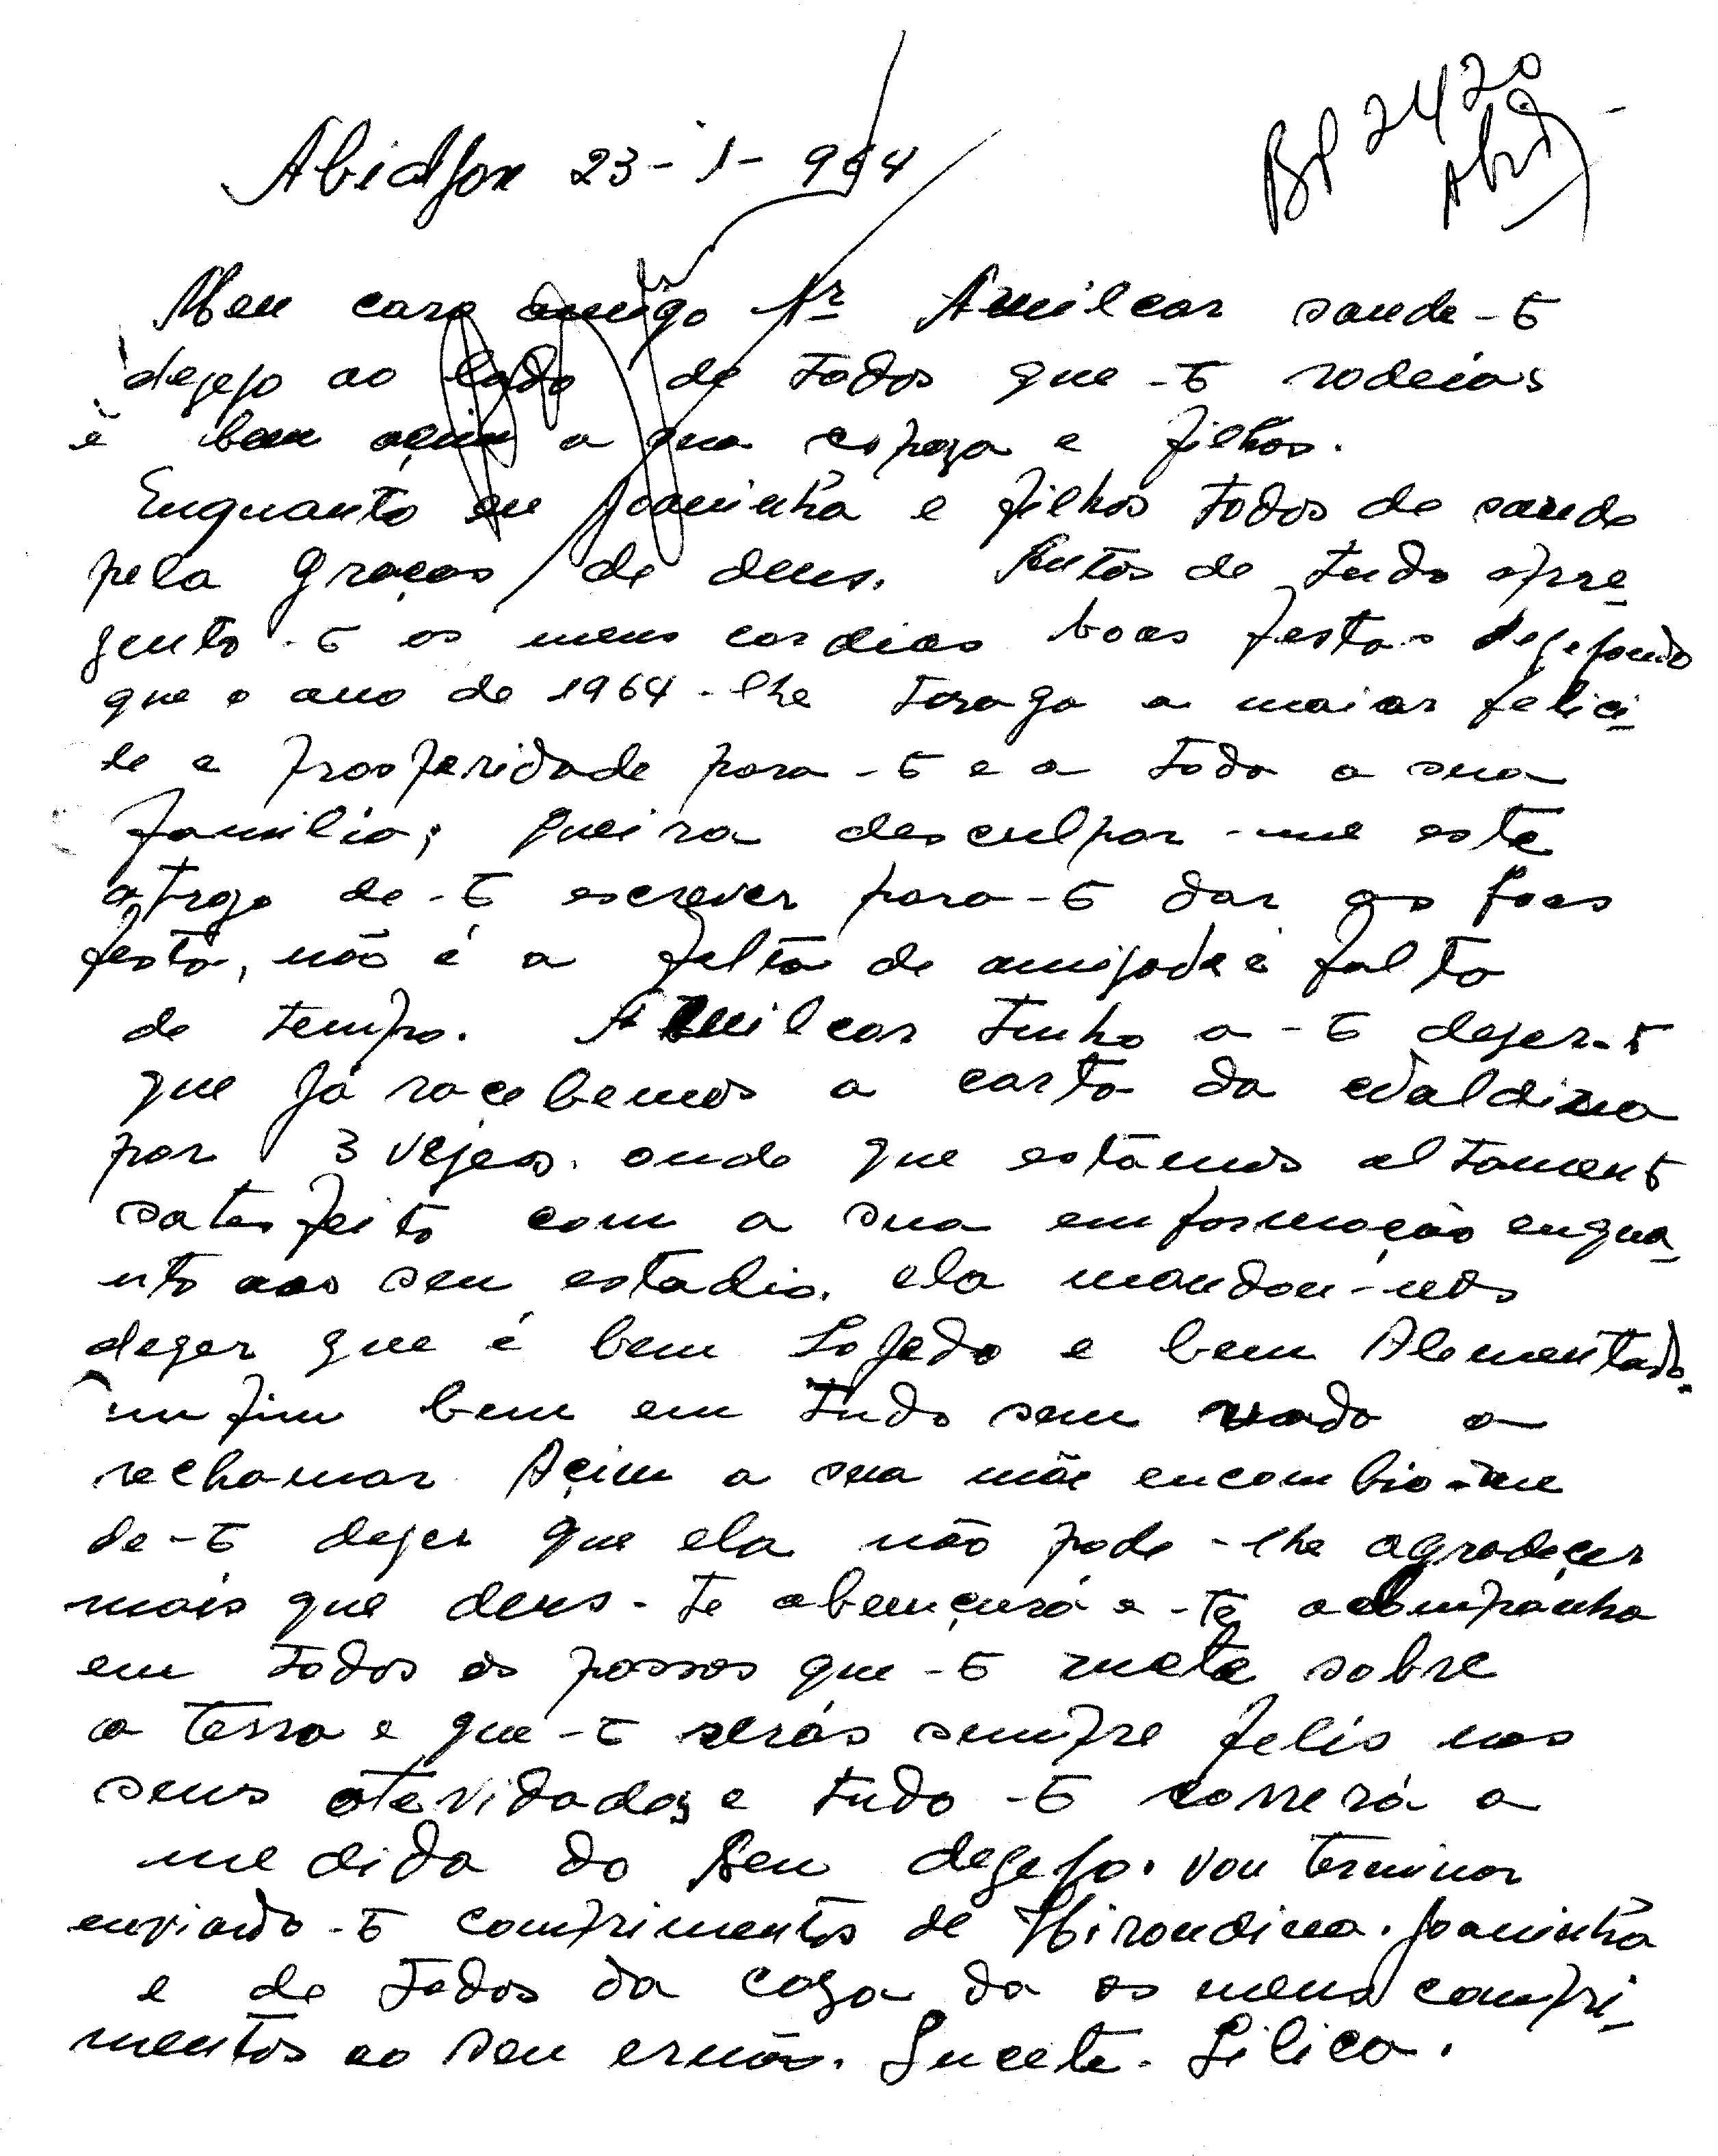 BP 2420
Abidj
Abidjon 23-1-964
Meu caro amigo Sr Amilcar saude-t
desejo ao lado de todos que-t rodeias
e bem açim a sua espoza e filhos.
Enquanto eu Joaninha e filhos todos de saude
pela graças de deus. Antos de tudo apre_
zento-t os meus cordias boas festas dezejando
que o ano de 1964-lhe traga a maior felici_
de e prosperidade para-t e a toda a sua
familia; queira desculpar-me este
atrazo de-t escrever para-t dar as boas
festa, não é a falta de amizade é falta
de tempo. Amilcar tenho a-t dezer-t
que já racebemos a carta da Waldina
por 3 vezes. onde que estamos altament
satesfeito com a sua emformação enqua_
nto aos seu estadio. ela mandou-nos
dezer que é bem Lojedo e bem Alementado.
imfim bem em tudo sem nada a
rechamar Açim a sua mãe encombio-me
de-t dezer que ela não pode-lhe agradecer
mais que deus-te abençura e-te acompanha
em todos os passos que-t meta sobre
a terra e que-t serás sempre felis nas
seus atevidades e tudo-t correrá a
medida do seu dezejo. vou terminar
enviando-t comprimentos de Hirondina. Joaninha
e de todos da caza da os meus compri_
mentos ao seu ermão. Lucete. Lilica.